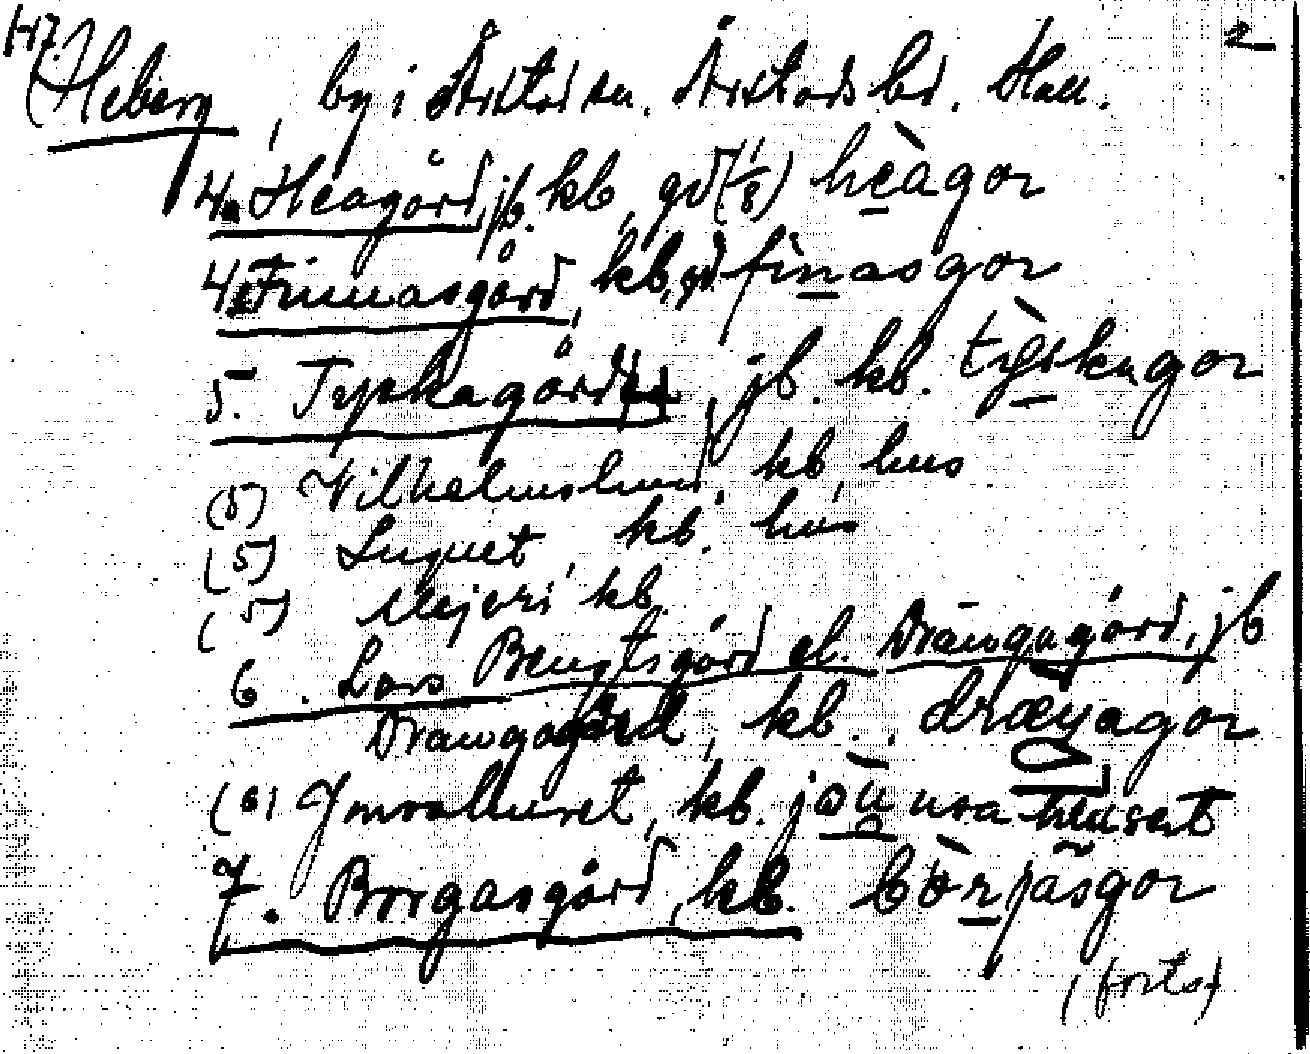 147. 2
(Heberg, by i Årstad sn. Årstads hd. Hall.
4. Heagård, jb. kb, gd (1/8) hèagor
4. Finnasgård, kb, gd fìnasgor
5. Tyskagård, jb. kb. tỳskagor
(5) Vilhelmslund, kb, hus
(5) Lugnet, kb. hus
(5) Mejeri kb.
6. Lars Bengtsgård el. Drängagård, jb
Drängagård, kb. dræŋagor
(6) Jonrahuset, kb.
7. Börgasgård, kb. bö̀rjasgor
(forts)